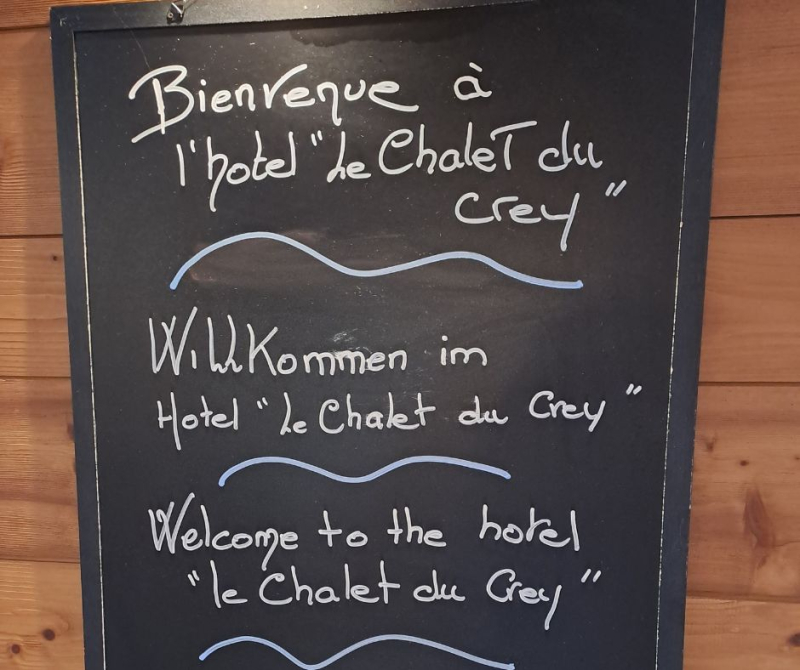 Bienvenue à
l'hotel "Le Chalet du
Crey"
Willkommen im
Hotel "Le Chalet du Crey"
Welcome to the hotel
"le Chalet du Crey"